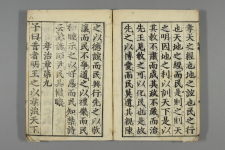 孝天之經也地之誼也民之行
也天地之經而民是則之則天
之明因地之利以訓天下是以
其教不肅而成其政不嚴而治
先王見教之可以化民也是故
先之以博愛而民莫遺其親陳
之以德誼而民興行先之以敬
讓而民不爭道之以禮樂而民
和睦示之以好惡而民知禁詩
云赫赫師尹民具爾瞻
孝治章第九
子曰昔者明王之以孝治天下